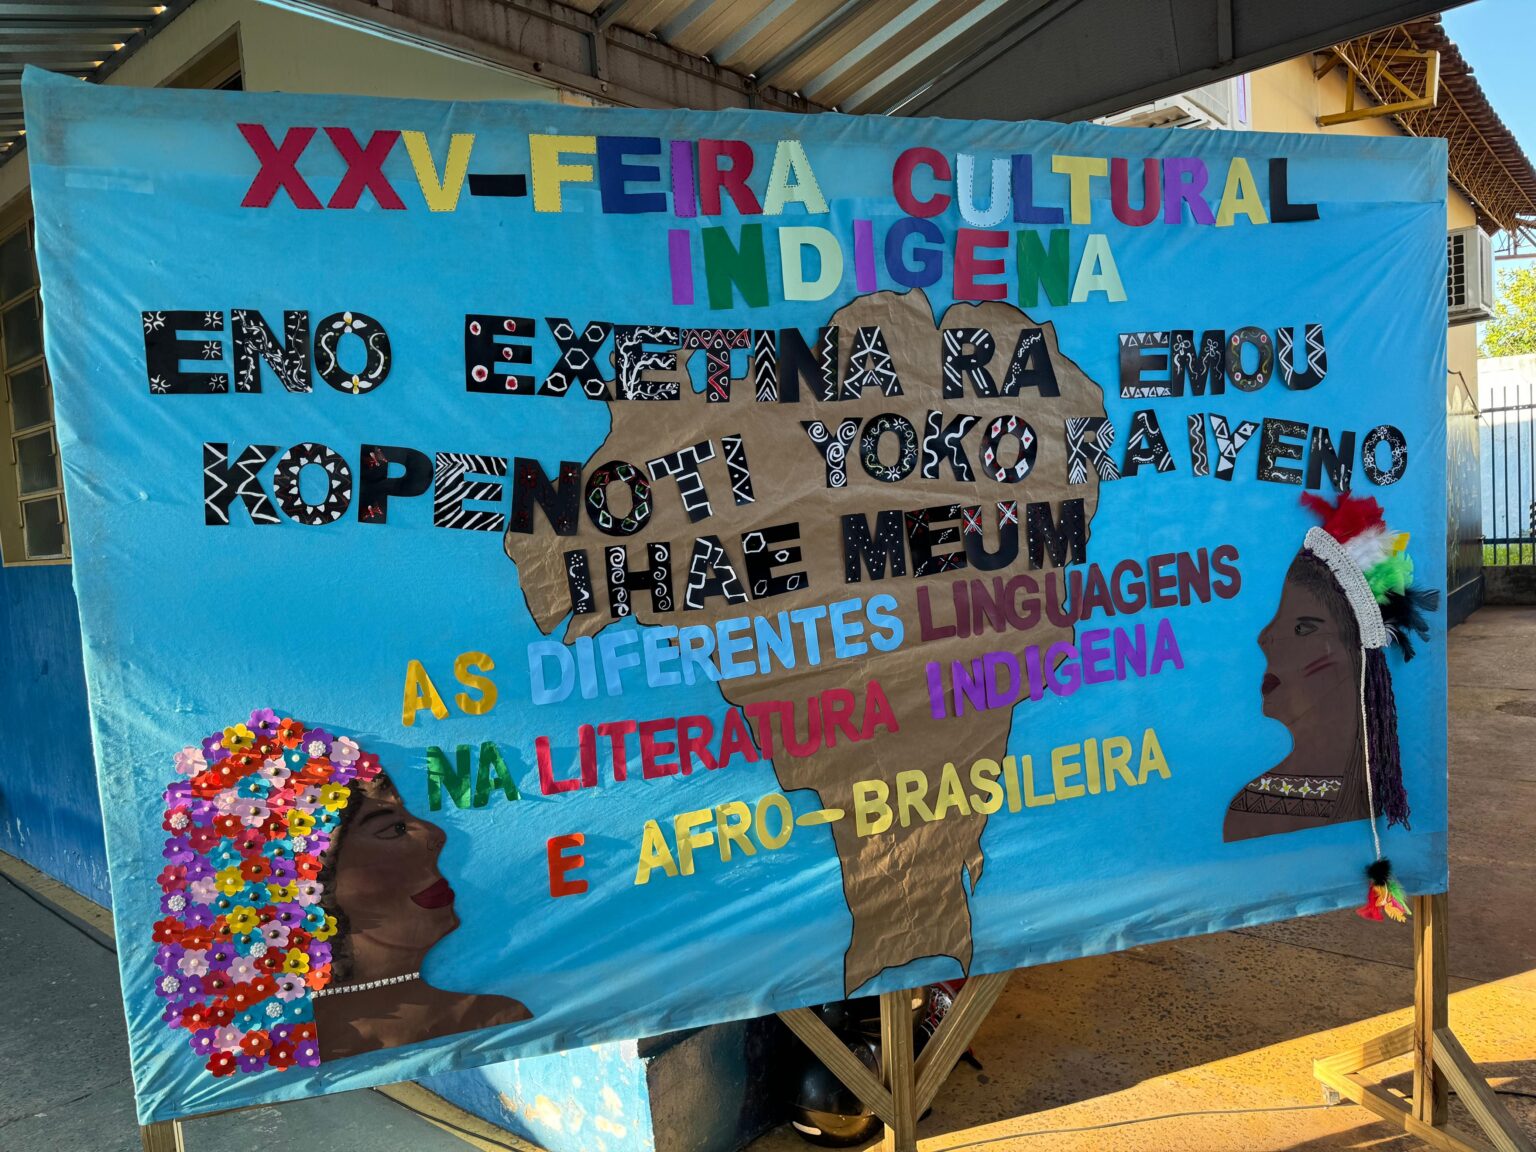 XXV-FEIRA CULTURAL
INDIGENA
ENO EXETINA RA EMOU
KOPENOTI YOKO RA IYENO
IHAE MEUM
AS DIFERENTES LINGUAGENS
NA LITERATURA INDIGENA
E AFRO-BRASILEIRA